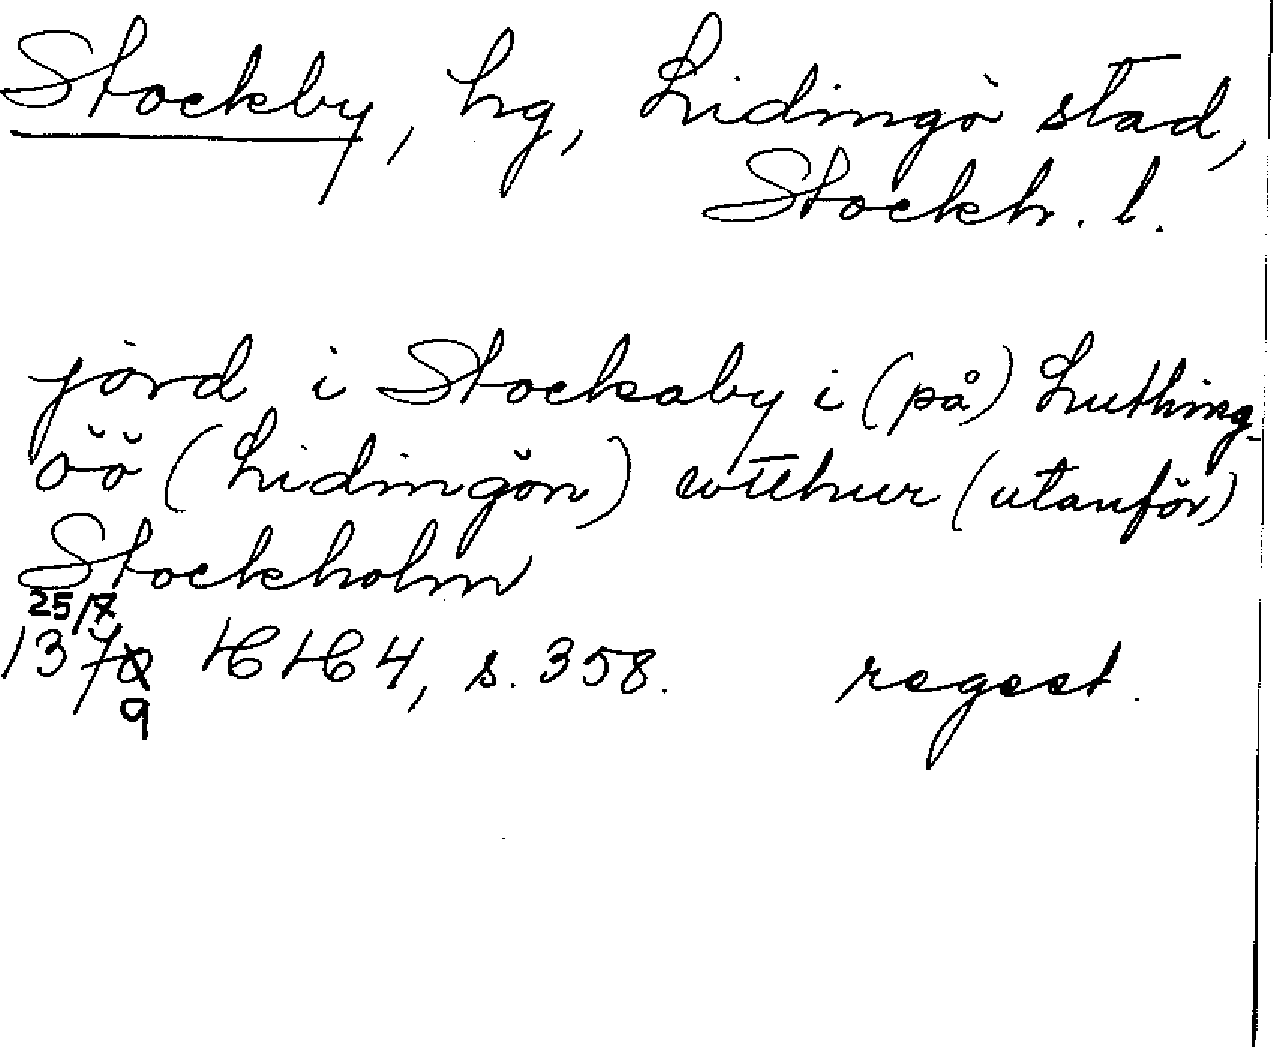 Stockby, hg, Lidingö stad,
Stockh. l.
jord i Stocksaby i (på) Luthing-
öö (Lidingön) wtthur (utanför)
Stockholm
25/7
1370 HH 4, s. 358. regest.
9